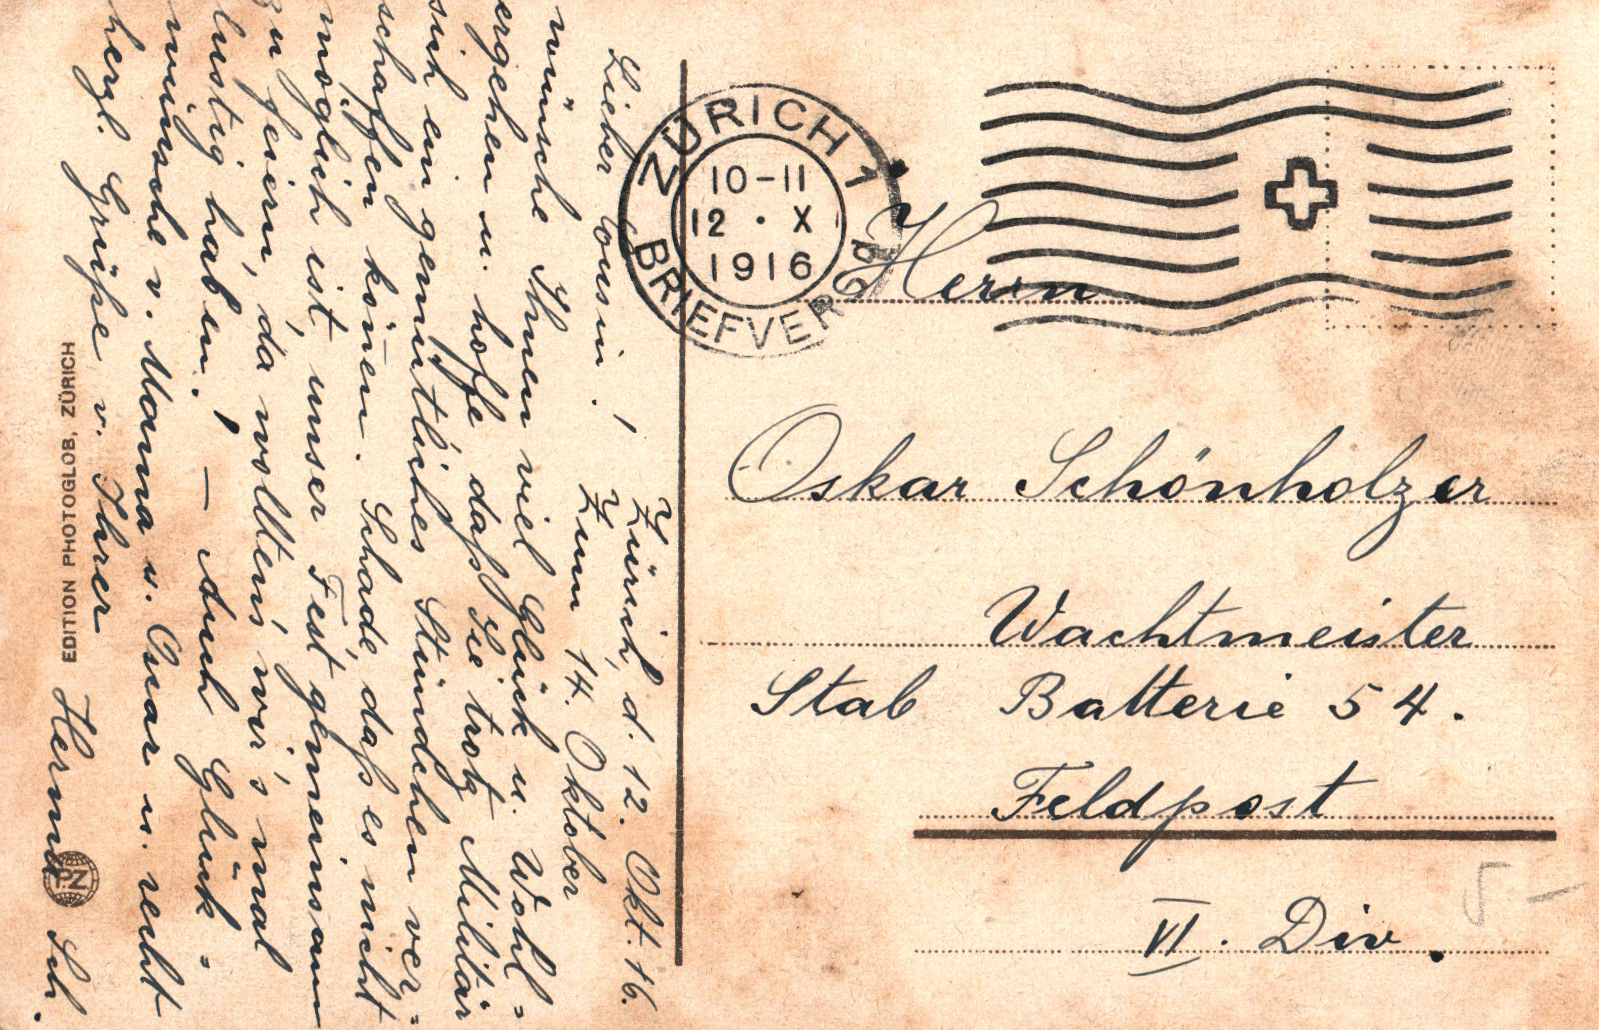 Zürich, d. 12. Okt. 16.
Zum 14. Oktober
Lieber Cousin!
wünsche Ihnen viel Glück u. Wohl=
ergehen u. hoffe daß Sie trotz Militär
sich ein gemütliches Stündchen ver=
schaffen könen. Schade, daß es nicht
möglich ist, unser Fest gemeinsam
zu feiern, da wollten wir's mal
lustig haben! — Auch Glück=
wünsche v. Mama u. Oscar u. recht
herzl. Grüße v. Ihrer
Herma Sch.
EDITION PHOTOGLOB, ZÜRICH
PZ
ZÜRICH 1
10-11
12 · X
1916
BRIEFVERSD
Herrn
Oskar Schönholzer
Wachtmeister
Stab Batterie 54.
Feldpost
VI. Div.
5 –